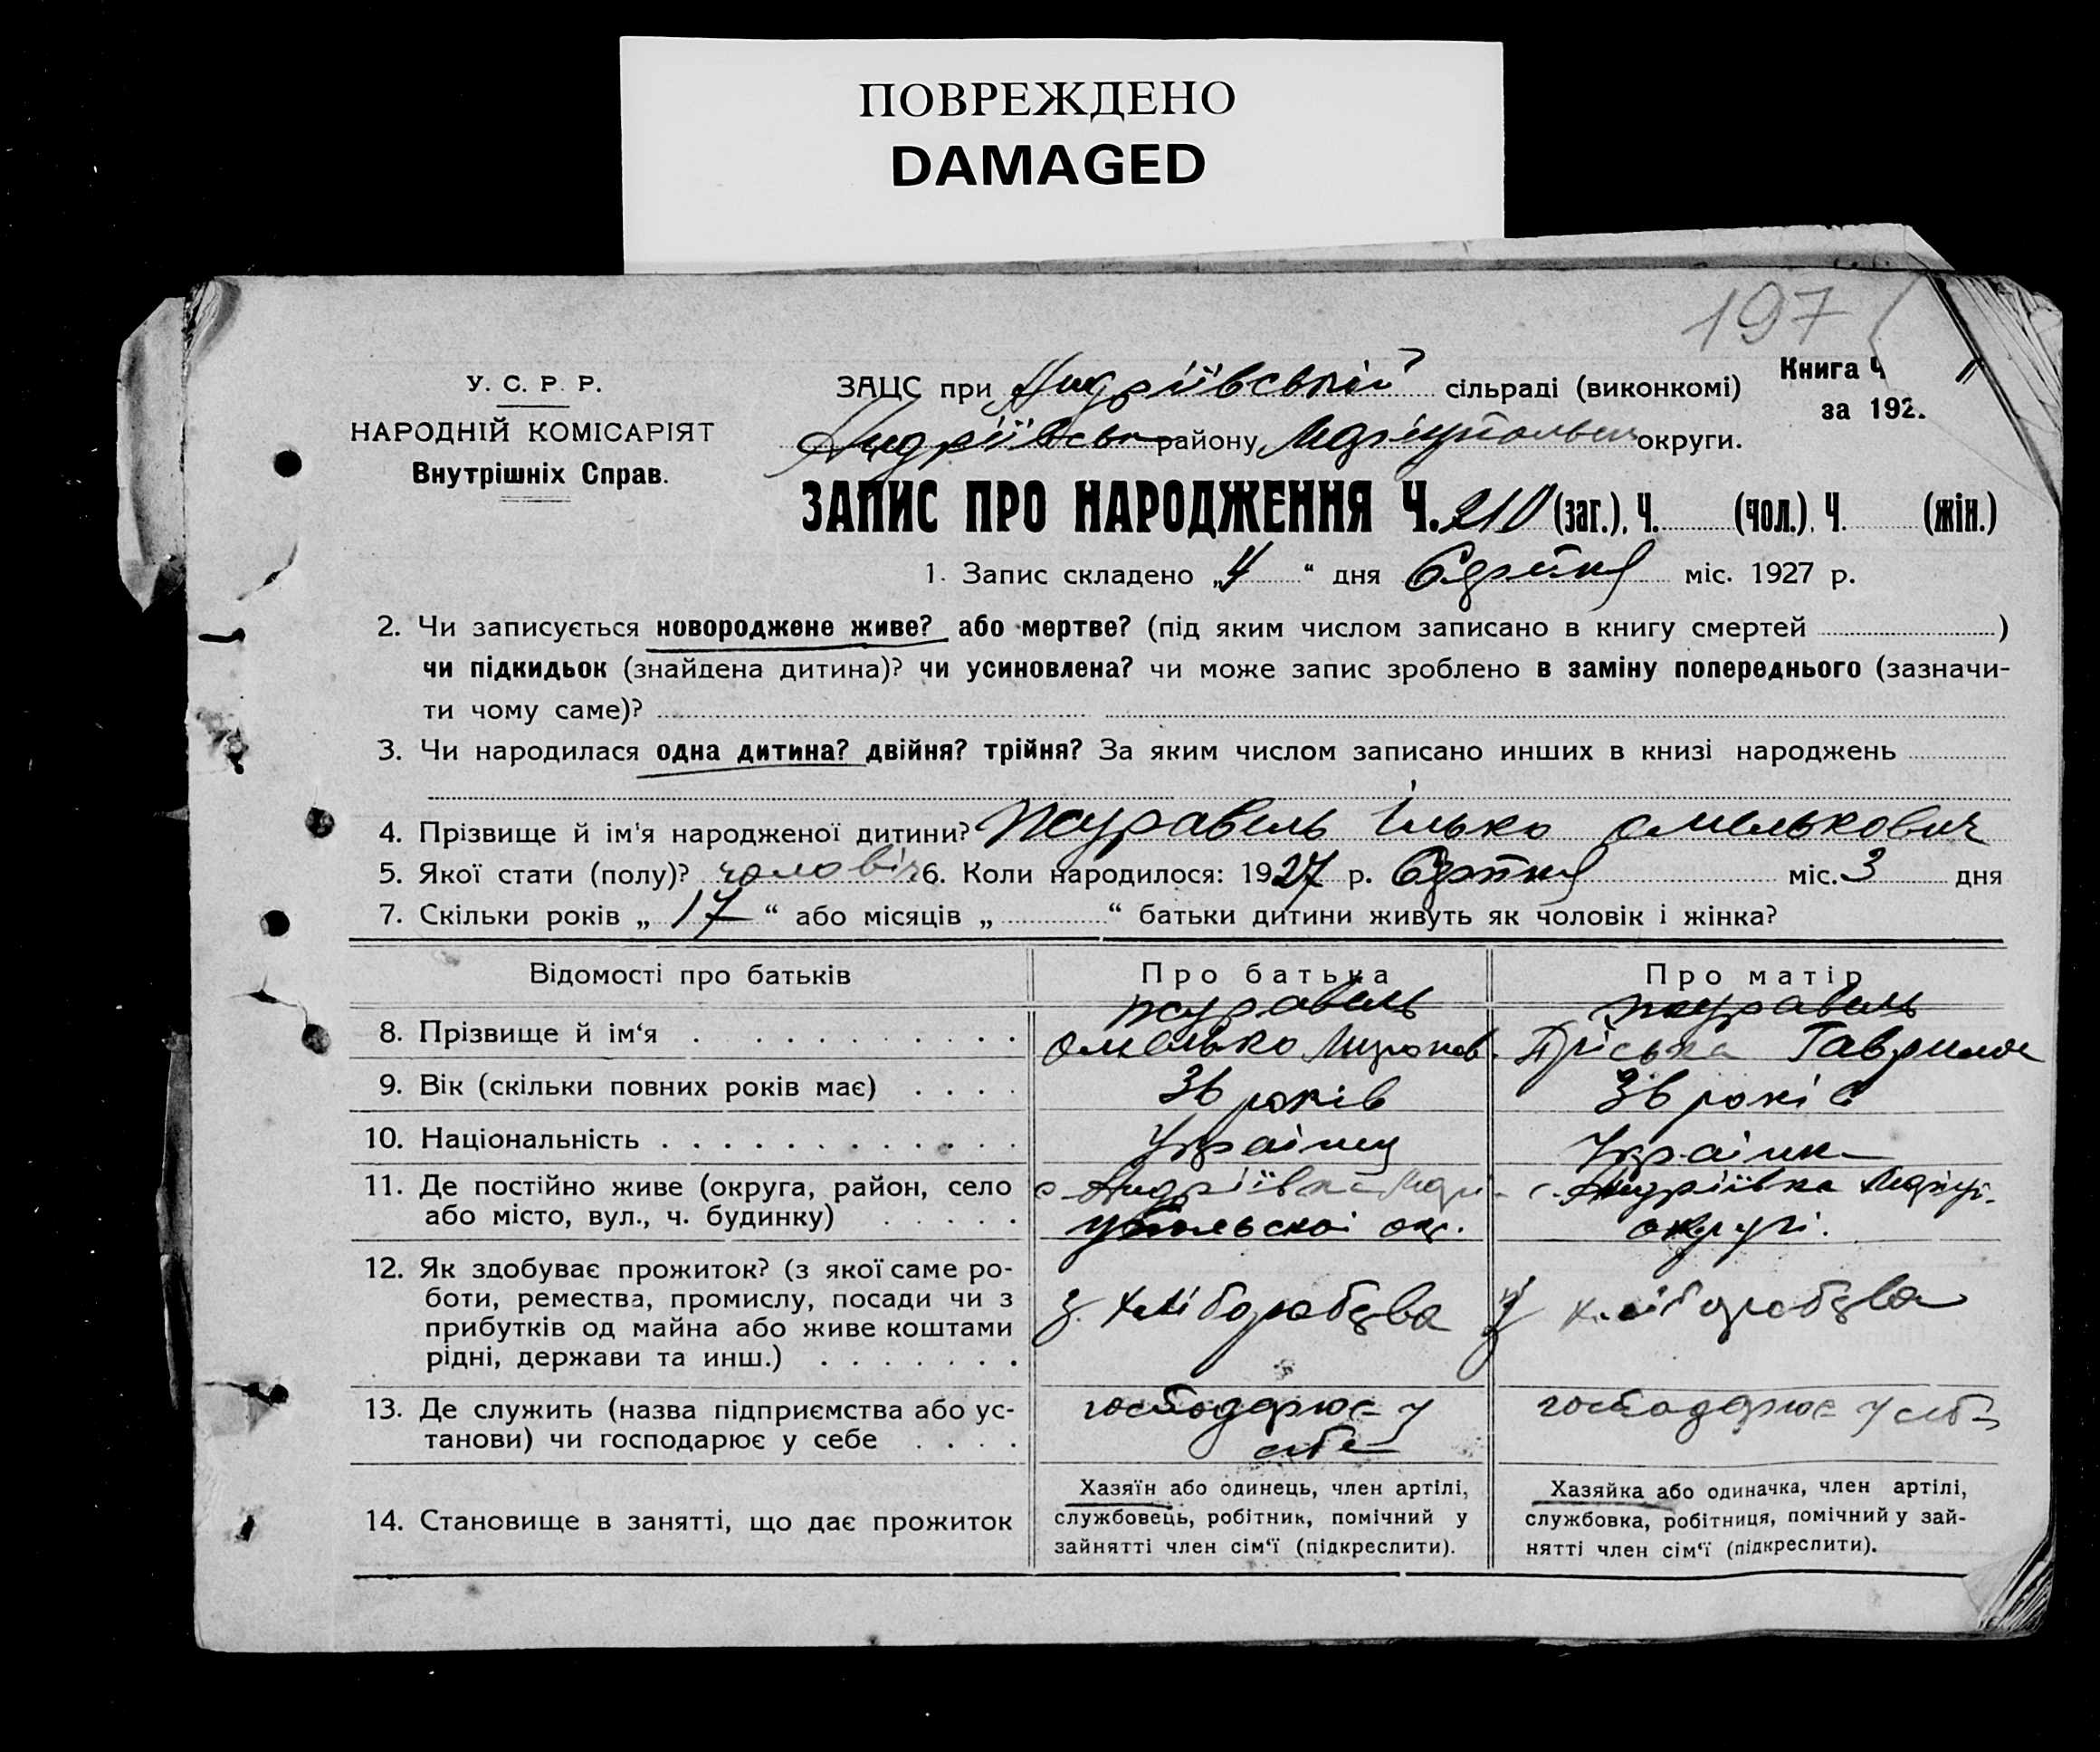 ПОВРЕЖДЕНО
DAMAGED
197
У. С. Р. Р.
НАРОДНІЙ КОМІСАРІЯТ
Внутрішніх Справ.
ЗАЦС при Андріївській сільраді (виконкомі)
Книга Ч
за 192.
Андріївськ району, Маріупольськ округи.
ЗАПИС ПРО НАРОДЖЕННЯ Ч. 210 (заг.), Ч. (чол.), Ч. (жін.)
1. Запис складено „4“ дня Серпня міс. 1927 р.
2. Чи записується новороджене живе? або мертве? (під яким числом записано в книгу смертей )
чи підкидьок (знайдена дитина)? чи усиновлена? чи може запис зроблено в заміну попереднього (зазначи-
ти чому саме)?
3. Чи народилася одна дитина? двійня? трійня? За яким числом записано инших в книзі народжень
4. Прізвище й ім'я народженої дитини? Журавель Ілько Омелькович
5. Якої стати (полу)? чоловіч 6. Коли народилося: 1927 р. Серпня міс. 3 дня
7. Скільки років „ 17 “ або місяців „ “ батьки дитини живуть як чоловік і жінка?
Відомості про батьків
Про батька
Про матір
8. Прізвище й ім‘я
Журавель
Омелько Миронов.
Журавель
Пріська Гаврилов
9. Вік (скільки повних років має)
36 років
36 років
10. Національність
Українец
Українка
11. Де постійно живе (округа, район, село
або місто, вул., ч. будинку)
с. Андріївка Марі-
упольскоі окр.
с. Андріївка Маріуп.
округі.
12. Як здобуває прожиток? (з якої саме ро-
боти, ремества, промислу, посади чи з
прибутків од майна або живе коштами
рідні, держави та инш.)
З хліборобства
З хліборобства
13. Де служить (назва підприємства або ус-
танови) чи господарює у себе
господарює у
себе
господарює у себе
14. Становище в занятті, що дає прожиток
Хазяїн або одинець, член артілі,
службовець, робітник, помічний у
зайнятті член сім‘ї (підкреслити).
Хазяйка або одиначка, член артілі,
службовка, робітниця, помічний у зай-
нятті член сім‘ї (підкреслити).